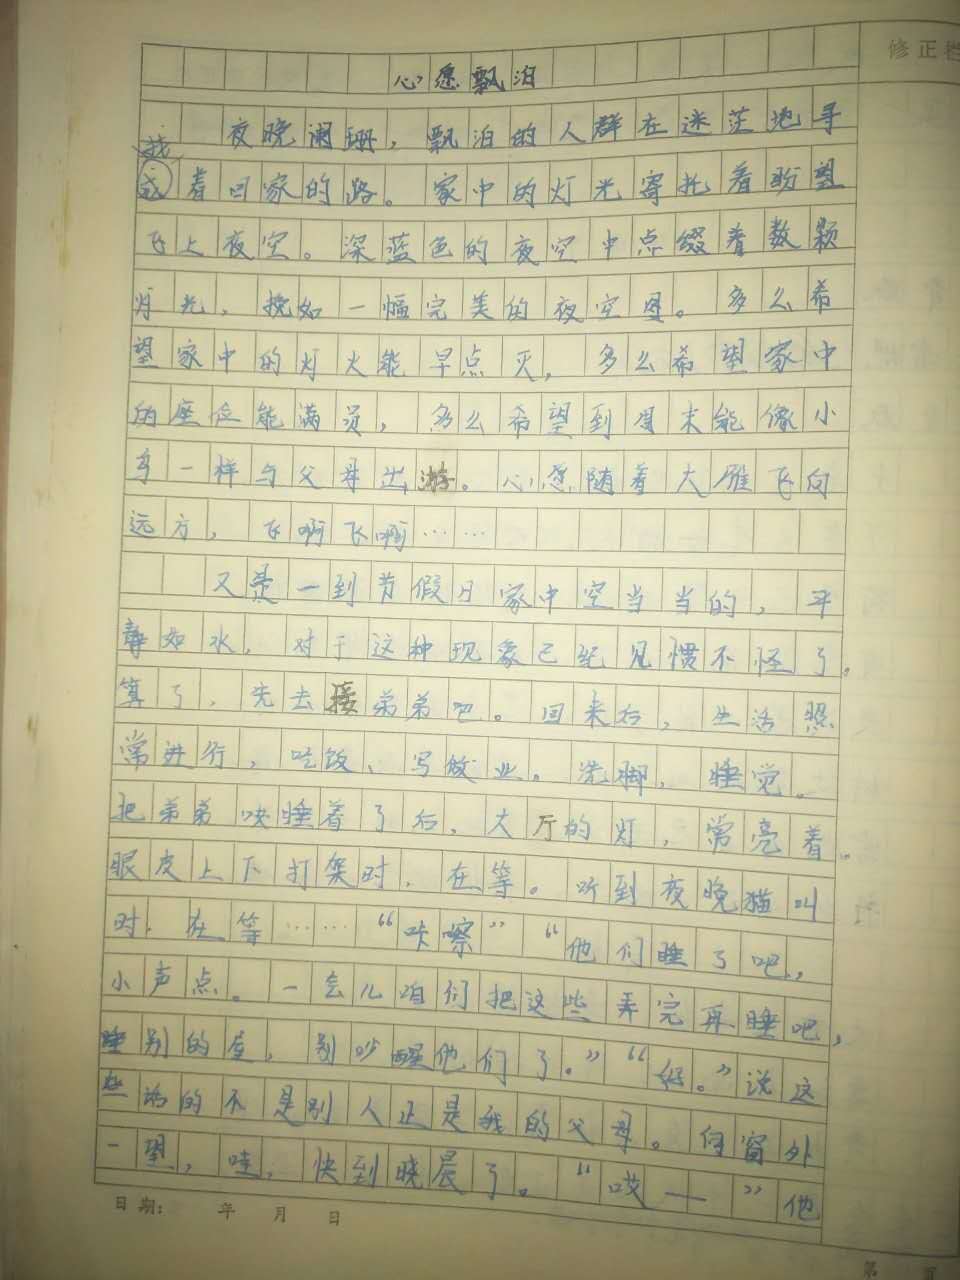 修正栏
心愿飘泊
夜晚阑珊，飘泊的人群在迷茫地寻
找
着回家的路。家中的灯光寄托着盼望
飞上夜空。深蓝色的夜空中点缀着数颗
灯光，挽如一幅完美的夜空图。多么希
望家中的灯火能早点灭，多么希望家中
的座位能满员，多么希望到周末能像小
鸟一样与父母出游。心愿随着大雁飞向
远方，飞啊飞啊……
又是一到节假日家中空当当的，平
静如水，对于这种现象已经见惯不怪了。
算了，先去接弟弟吧。回来后，生活照
常进行，吃饭、写做业。洗脚，睡觉。
把弟弟哄睡着了后，大厅的灯，常亮着。
眼皮上下打架时，在等。听到夜晚猫叫
时，在等……“咔嚓”“他们睡了吧，
小声点。一会儿咱们把这些弄完再睡吧，
睡别的屋，别吵醒他们了。”“好。”说这
些话的不是别人正是我的父母。向窗外
一望，哇，快到晓晨了。“哎——”他
日期： 年 月 日
第 页